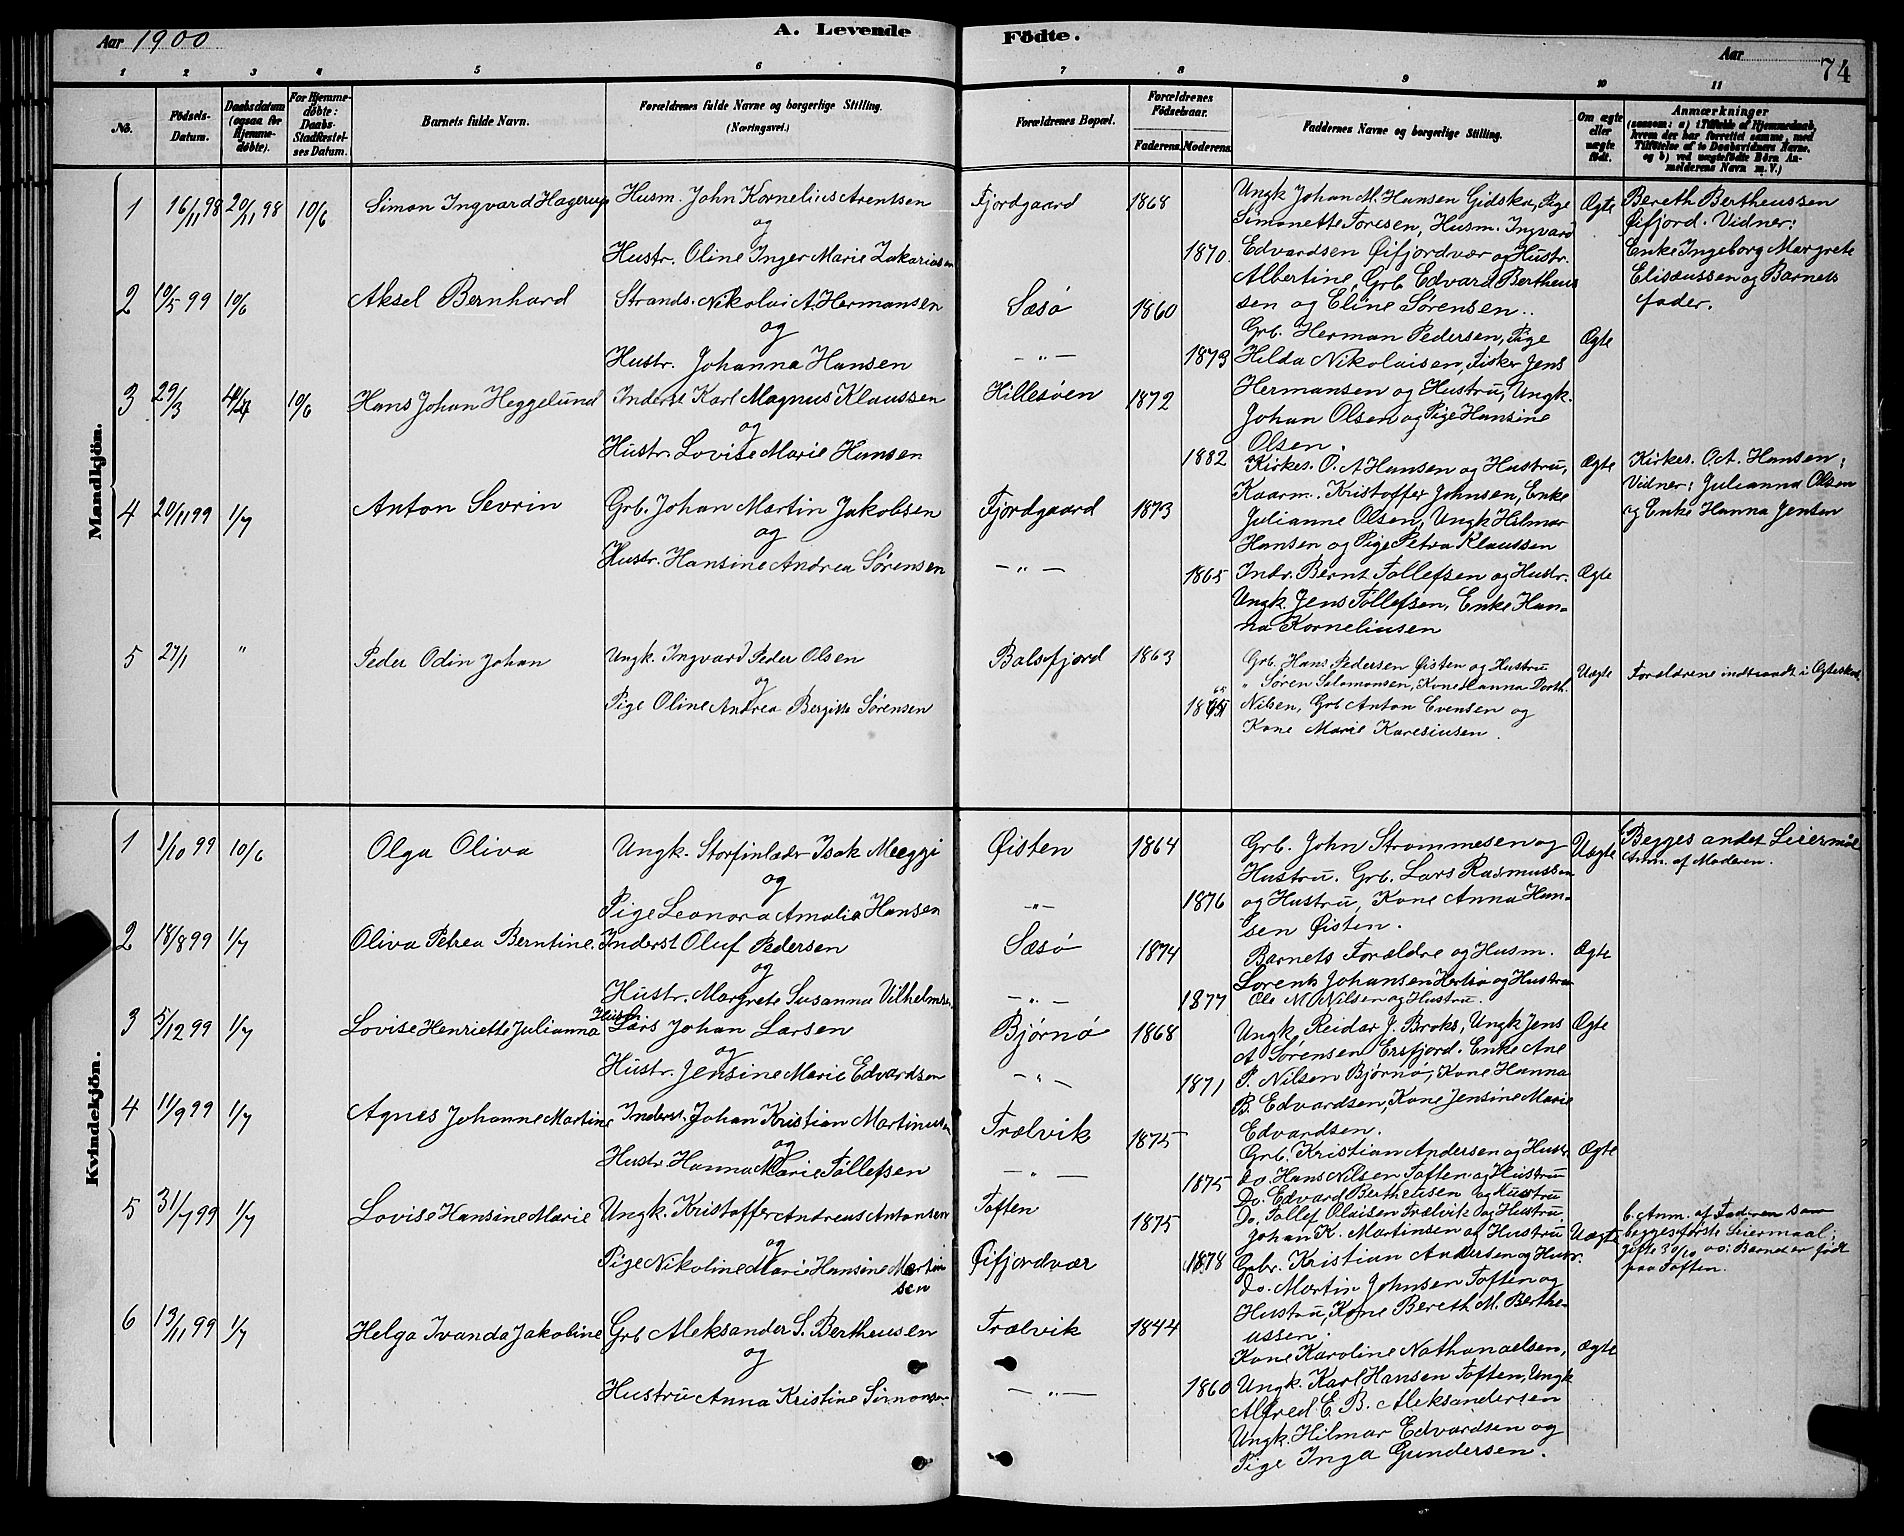 Aar 1900
A. Levende Födte.
Aar
74
1 2 3 4 5 6 7 8 9 10 11
No.
Födsels-
Datum.
Daabsdatum
(ogsaa for
Hjemme-
döbte).
For Hjemme-
döbte:
Daabs-
Stadfæstel-
ses Datum.
Barnets fulde Navn.
Forældrenes fulde Navne og borgerlige Stilling.
(Næringsvei.)
Forældrenes Bopæl.
Forældrenes
Födselsaar.
Faderens. Moderens.
Faddernes Navne og borgerlige Stilling.
Om ægte
eller
uægte
født.
Anmærkninger
(saasom: a) i Tilfælde af Hjemmedaab,
hvem der har forrettet samme, med
Tilföielse af to Daabsvidners Navne,
og b) ved uægtefödte Börn An-
melderens Navn m. V.)
Mandkjön.
1 16/11 98 20/11 98 10/6 Simon Ingvard Hagerup
Husm. John Kornelius Arentsen
og
Hustr. Oline Inger Marie Zakariasen
Fjordgaard 1868
1870
Ungk Johan M. Hansen Gidska, Pige
Simonette Toresen, Husm. Ingvard
Edvardsen Øifjordvær og Hustr.
Albertine, Grb Edvard Bertheus
sen og Eline Sørensen..
Ægte
Bereth Bertheussen
Øifjord. Vidner:
Enke Ingeborg Margrete
Elisæussen og Barnets
fader.
2 10/5 99 10/6 Aksel Bernhard
Strands. Nikolai A. Hermansen
og
Hustr. Johanna Hansen
Sæsø 1860
-"- 1873
Grb. Herman Pedersen, Pige
Hilda Nikolaisen, Fisker Jens
Hermansen og Hustru, Ungk.
Johan Olsen og Pige Hansine
Olsen.
Ægte
3 29/3 10/6 Hans Johan Heggelund
Inderst Karl Magnus Klaussen
og
Hustr. Lovise Marie Hansen
Hillesøen 1872
1882
Kirkes. O. A Hansen og Hustru,
Kaarm. Kristoffer Johnsen, Enke
Julianne Olsen, Ungk Hilmar
Hansen og Pige Petra Klaussen
Ægte
Kirkes. O.A. Hansen;
Vidner: Julianna Olsen
og Enke Hanna Jensen
4 20/11 99 1/7 Anton Sevrin
Grb. Johan Martin Jakobsen
og
Hustr. Hansine Andrea Sørensen
Fjordgaard 1873
-"- 1865
Indr. Bernt Tollefsen og Hustr.
Ungk. Jens Tollefsen, Enke Han-
na Korneliusen
Ægte
5 27/1 " Peder Odin Johan
Ungk. Ingvard Peder Olsen
og
Pige Oline Andrea Bergitte Sørensen
Balsfjord 1863
Grb. Hans Pedersen Øisten og Hustru
" Søren Salamonsen, Kone Hanna Dorth.
Nilsen, Grb Anton Evensen og
Kone Marie Karesiusen.
Uægte
Forældrene indtraadt i Ægteskab
Kvindekjön.
1 1/10 99 10/6 Olga Oliva
Ungk. Storfinlæder Isak Meeggi
og
Pige Leonora Amalia Hansen
Øisten 1864
-"- 1876
Grb. John Strømmesen og
Hustru. Grb. Lars Rasmussen
og Hustru, Kone Anna Han-
sen Øisten.
Uægte
Begges andet Leiermål
Anm. af Moderen.
2 18/8 99 1/7 Oliva Petrea Berntine
Inderst Oluf Pedersen
og
Hustr. Margrete Susanna Vilhelmsen
Sæsø 1874
-"- 1877
Barnets Forældre og Husm.
Lorents Johansen Hertsø og Hustru
Ole N. Nilsen og Hustru.
Ægte
3 5/12 99 1/7 Lovise Henriette Julianna
Husm. Lars Johan Larsen
og
Hustr. Jensine Marie Edvardsen
Bjørnø 1868
-"- 1871
Ungk. Reidar J. Broks, Ungk Jens
A Sørensen Ersfjord. Enke Ane
P. Nilsen Bjørnø, Kone Hanna
B. Edvardsen, Kone Jensine Marie
Edvardsen.
Ægte
4 11/9 99 1/7 Agnes Johanne Martine
Inderst. Johan Kristian Martinusen
og
Hustr. Hanna Marie Tollefsen
Trælvik 1875
-"- 1875
Grb. Kristian Andersen og Hustr.
Do. Hans Nilsen Toften og Hustru
Do. Edvard Bertheusen og Hustru
Do. Tollef Olaisen Trælvik og Hustru
Johan K. Martinsen og Hustru
Ægte
5 31/7 99 1/7 Lovise Hansine Marie
Ungk. Kristoffer Andreas Antonsen
og
Pige Nikoline Marie Hansine Martin
sen
Toften 1875
Øifjordvær 1878
Gabr. Kristian Andersen og Hustr.
Do. Martin Johnsen Toften og
Hustru, Kone Bereth M. Berthe-
ussen.
Uægte
b. Anm. af Faderen som
begges første Leiermaal;
gifte 30/10 00: Barnet er født
paa Toften.
6 13/11 99 1/7 Helga Ivanda Jakobine
Grb Aleksander S. Bertheusen
og
Hustru Anna Kristine Simonsen
Trælvik 1844
-"- 1860
Kone Karoline Nathanaelsen,
Ungk. Karl Hansen Toften, Ungk
Alfred E. B. Aleksandersen
Ungk. Hilmar Edvardsen og
Pige Inga Gundersen.
Ægte